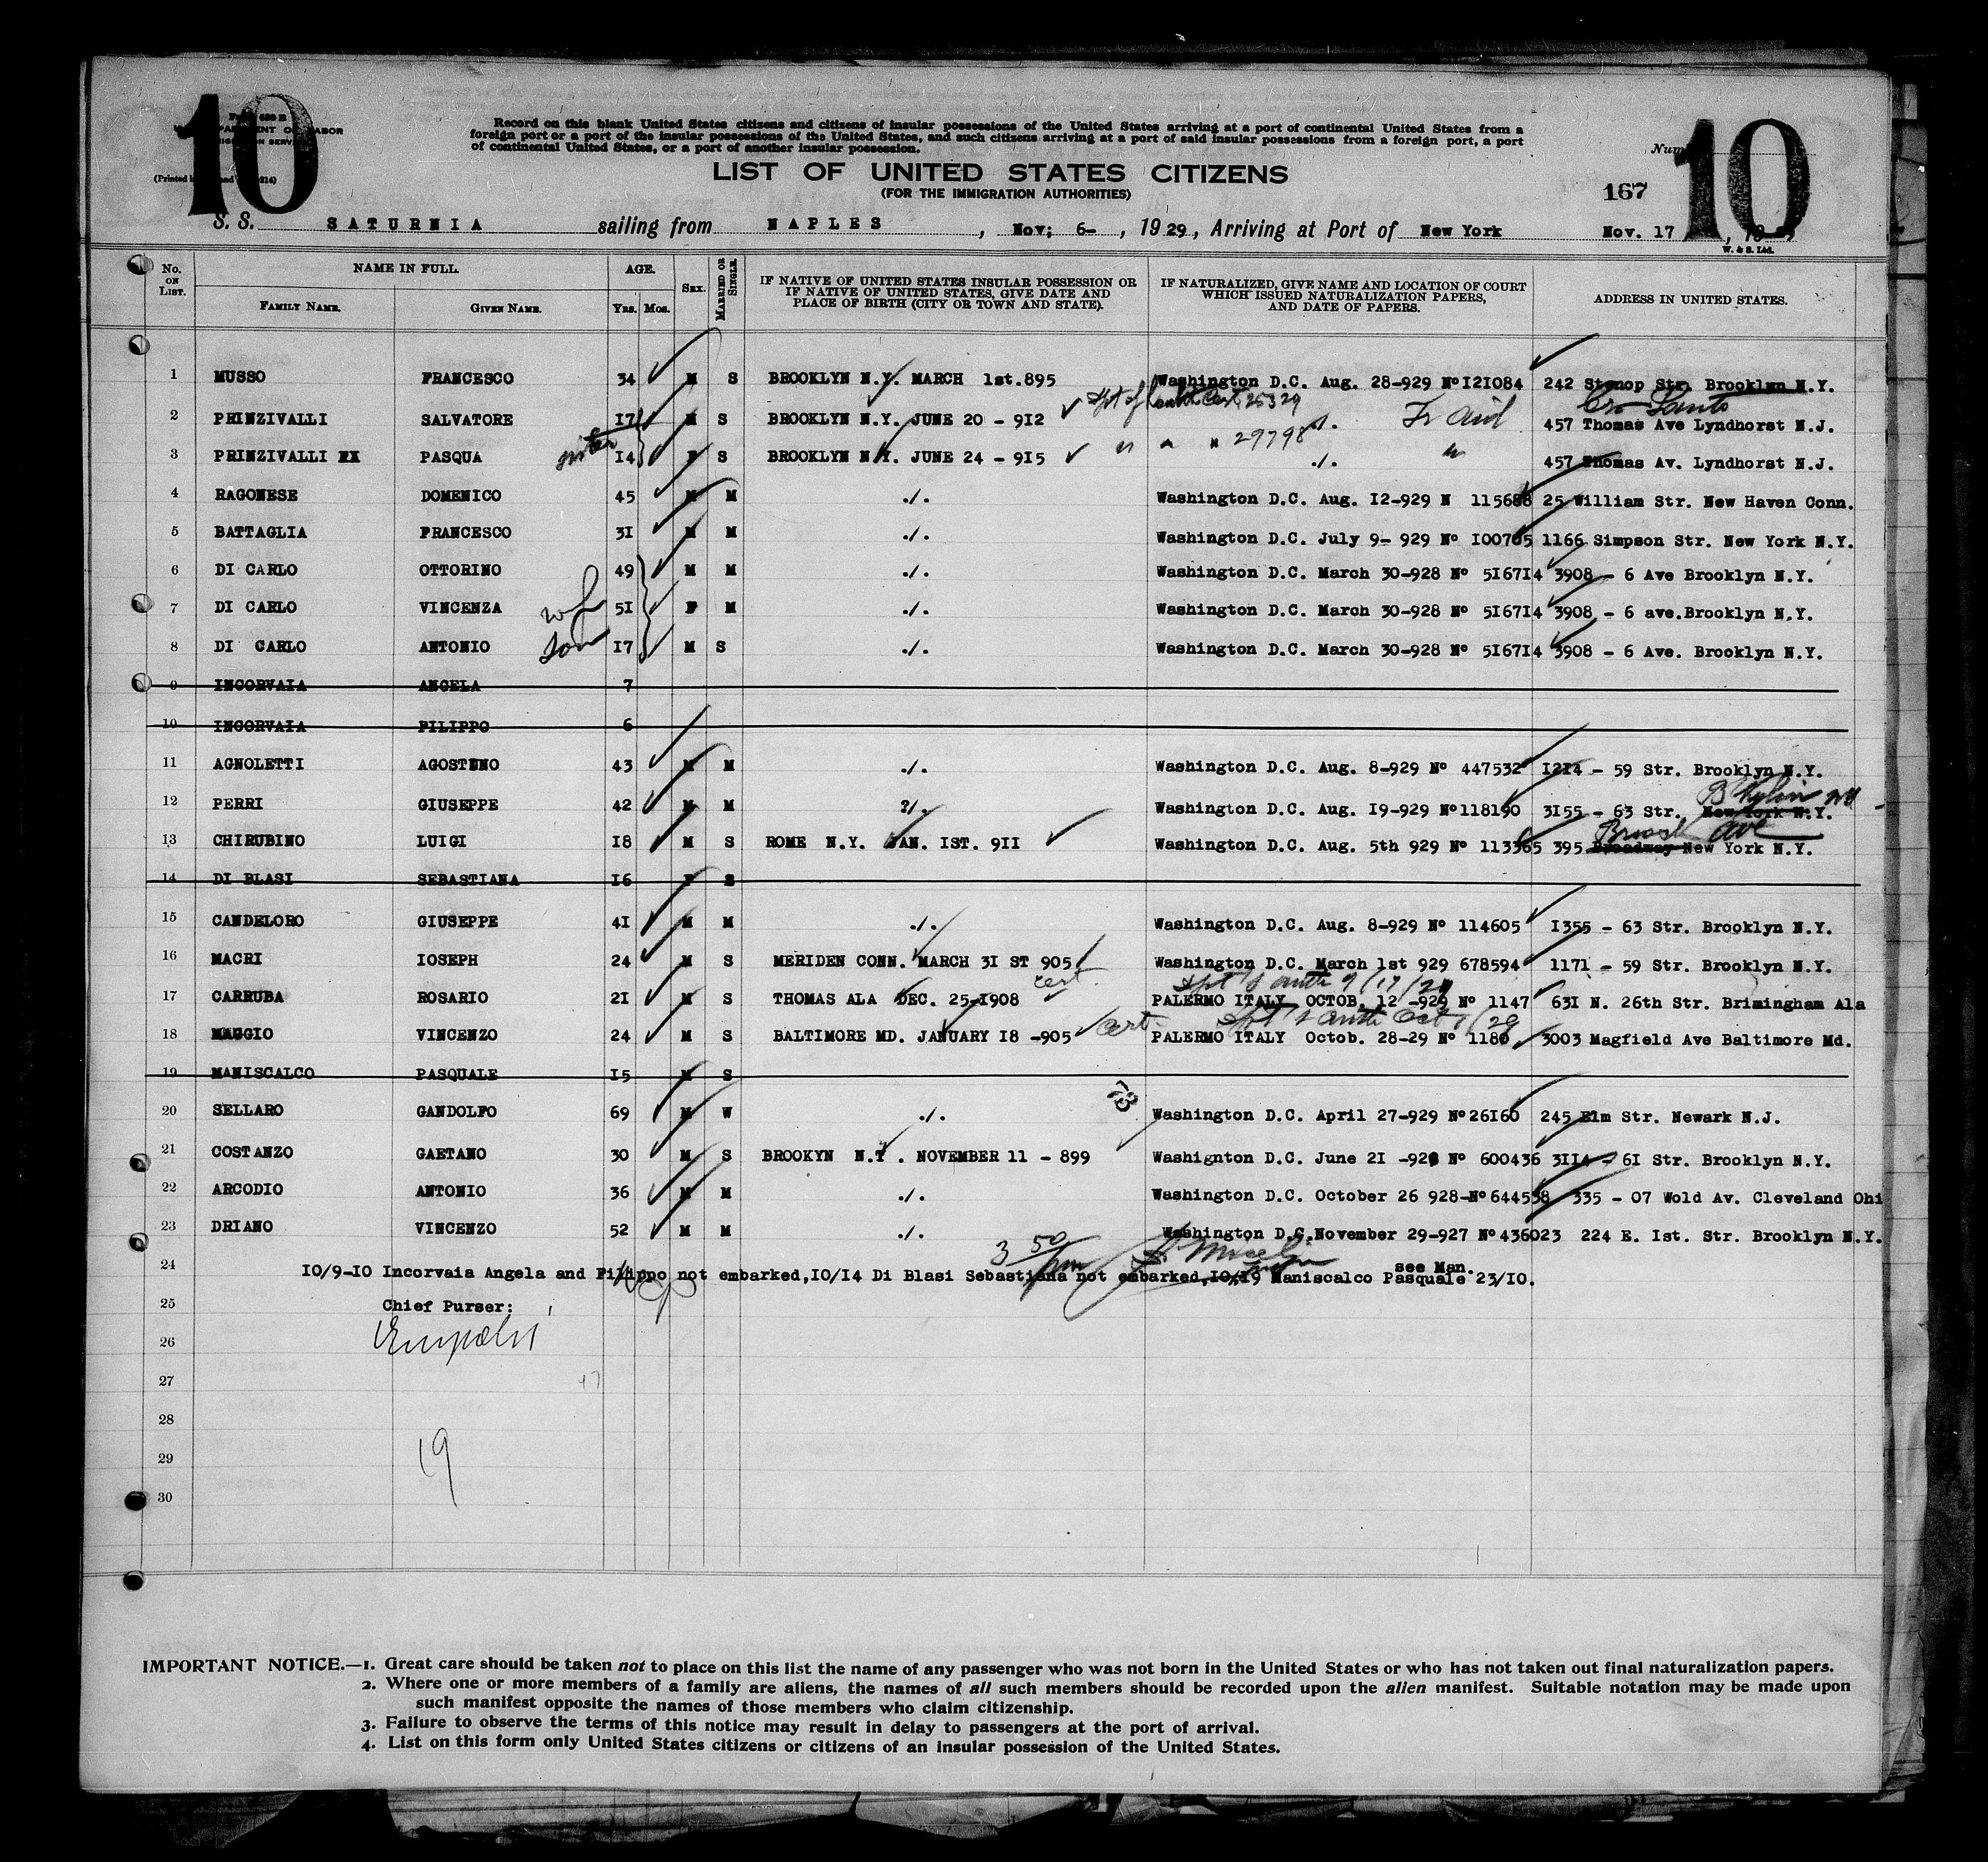 10
Record on this blank United States citizens and citizens of insular possessions of the United States arriving at a port of continental United States from a
foreign port or a port of the insular possessions of the United States, and such citizens arriving at a port of said insular possessions from a foreign port, a port
of continental United States, or a port of another insular possession.
10
LIST OF UNITED STATES CITIZENS
(FOR THE IMMIGRATION AUTHORITIES)
167
S. S. SATURNIA sailing from NAPLES, Nov; 6-, 1929, Arriving at Port of New York Nov. 17
W. & S. Ltd.
No. ON LIST. NAME IN FULL. AGE. SEX. MARRIED OR SINGLE. IF NATIVE OF UNITED STATES INSULAR POSSESSION OR IF NATIVE OF UNITED STATES, GIVE DATE AND PLACE OF BIRTH (CITY OR TOWN AND STATE). IF NATURALIZED, GIVE NAME AND LOCATION OF COURT WHICH ISSUED NATURALIZATION PAPERS, AND DATE OF PAPERS. ADDRESS IN UNITED STATES.
FAMILY NAME. GIVEN NAME. Yrs. Mos.
1 MUSSO FRANCESCO 34 M S BROOKLYN N.Y. MARCH 1st.895 Washington D.C. Aug. 28-929 Nº I2I084 242 Stenop Str. Brooklyn N.Y.
2 PRINZIVALLI SALVATORE I7 M S BROOKLYN N.Y. JUNE 20 - 9I2 25329 ./. 457 Thomas Ave Lyndhorst N.J.
3 PRINZIVALLI PASQUA sister I4 F S BROOKLYN N.Y. JUNE 24 - 9I5 " " " 29798 ./. " 457 Thomas Av. Lyndhorst N.J.
4 RAGONESE DOMENICO 45 M M ./. Washington D.C. Aug. I2-929 N 115688 25 William Str. New Haven Conn.
5 BATTAGLIA FRANCESCO 3I M M ./. Washington D.C. July 9- 929 Nº I00705 1166 Simpson Str. New York N.Y.
6 DI CARLO OTTORINO 49 M M ./. Washington D.C. March 30-928 Nº 5I67I4 3908 - 6 Ave Brooklyn N.Y.
7 DI CARLO VINCENZA wf 5I F M ./. Washington D.C. March 30-928 Nº 5I67I4 3908 - 6 ave.Brooklyn N.Y.
8 DI CARLO ANTONIO son I7 M S ./. Washington D.C. March 30-928 Nº 5I67I4 3908 - 6 Ave. Brooklyn N.Y.
9 INCORVAIA ANGELA 7
10 INCORVAIA FILIPPO 6
11 AGNOLETTI AGOSTINO 43 M M ./. Washington D.C. Aug. 8-929 Nº 447532 I2I4 - 59 Str. Brooklyn N.Y.
12 PERRI GIUSEPPE 42 M M ?/. Washington D.C. Aug. I9-929 Nº 118190 3I55 - 63 Str. New York N.Y. B'klyn NY
13 CHIRUBINO LUIGI I8 M S ROME N.Y. JAN. IST. 9II Washington D.C. Aug. 5th 929 Nº 113365 395 Broadway New York N.Y. Brook Ave
14 DI BLASI SEBASTIANA I6 F S
15 CANDELORO GIUSEPPE 4I M M ./. Washington D.C. Aug. 8-929 Nº 114605 I355 - 63 Str. Brooklyn N.Y.
16 MACRI IOSEPH 24 M S MERIDEN CONN. MARCH 3I ST 905 Washington D.C. March 1st 929 678594 1171 - 59 Str. Brooklyn N.Y.
17 CARRUBA ROSARIO 2I M S THOMAS ALA DEC. 25-I908 cert. PALERMO ITALY OCTOB. I2 -929 Nº 1147 63I N. 26th Str. Brimingham Ala
18 MAGGIO VINCENZO 24 M S BALTIMORE MD. JANUARY I8 -905 Cert. PALERMO ITALY Octob. 28-29 Nº 1180 3003 Magfield Ave Baltimore Md.
19 MANISCALCO PASQUALE I5 M S
20 SELLARO GANDOLFO 69 M W ./. Washington D.C. April 27-929 Nº 26I60 245 Elm Str. Newark N.J.
21 COSTANZO GAETANO 30 M S BROOKYN N.Y . NOVEMBER 11 - 899 Washignton D.C. June 2I -928 Nº 600436 3II4 - 6I Str. Brooklyn N.Y.
22 ARCODIO ANTONIO 36 M M ./. Washington D.C. October 26 928-Nº 644538 335 - 07 Wold Av. Cleveland Ohi
23 DRIANO VINCENZO 52 M M ./. Washington D.C.November 29-927 Nº 436023 224 E. Ist. Str. Brooklyn N.Y.
3 50 pm
24 IO/9-IO Incorvaia Angela and Filippo not embarked,IO/I4 Di Blasi Sebastiana not embarked,IO/I9 Maniscalco Pasquale see Man. 23/IO.
25 Chief Purser:
26
27 47
28
29 19
30
IMPORTANT NOTICE.—1. Great care should be taken not to place on this list the name of any passenger who was not born in the United States or who has not taken out final naturalization papers.
2. Where one or more members of a family are aliens, the names of all such members should be recorded upon the alien manifest. Suitable notation may be made upon
such manifest opposite the names of those members who claim citizenship.
3. Failure to observe the terms of this notice may result in delay to passengers at the port of arrival.
4. List on this form only United States citizens or citizens of an insular possession of the United States.